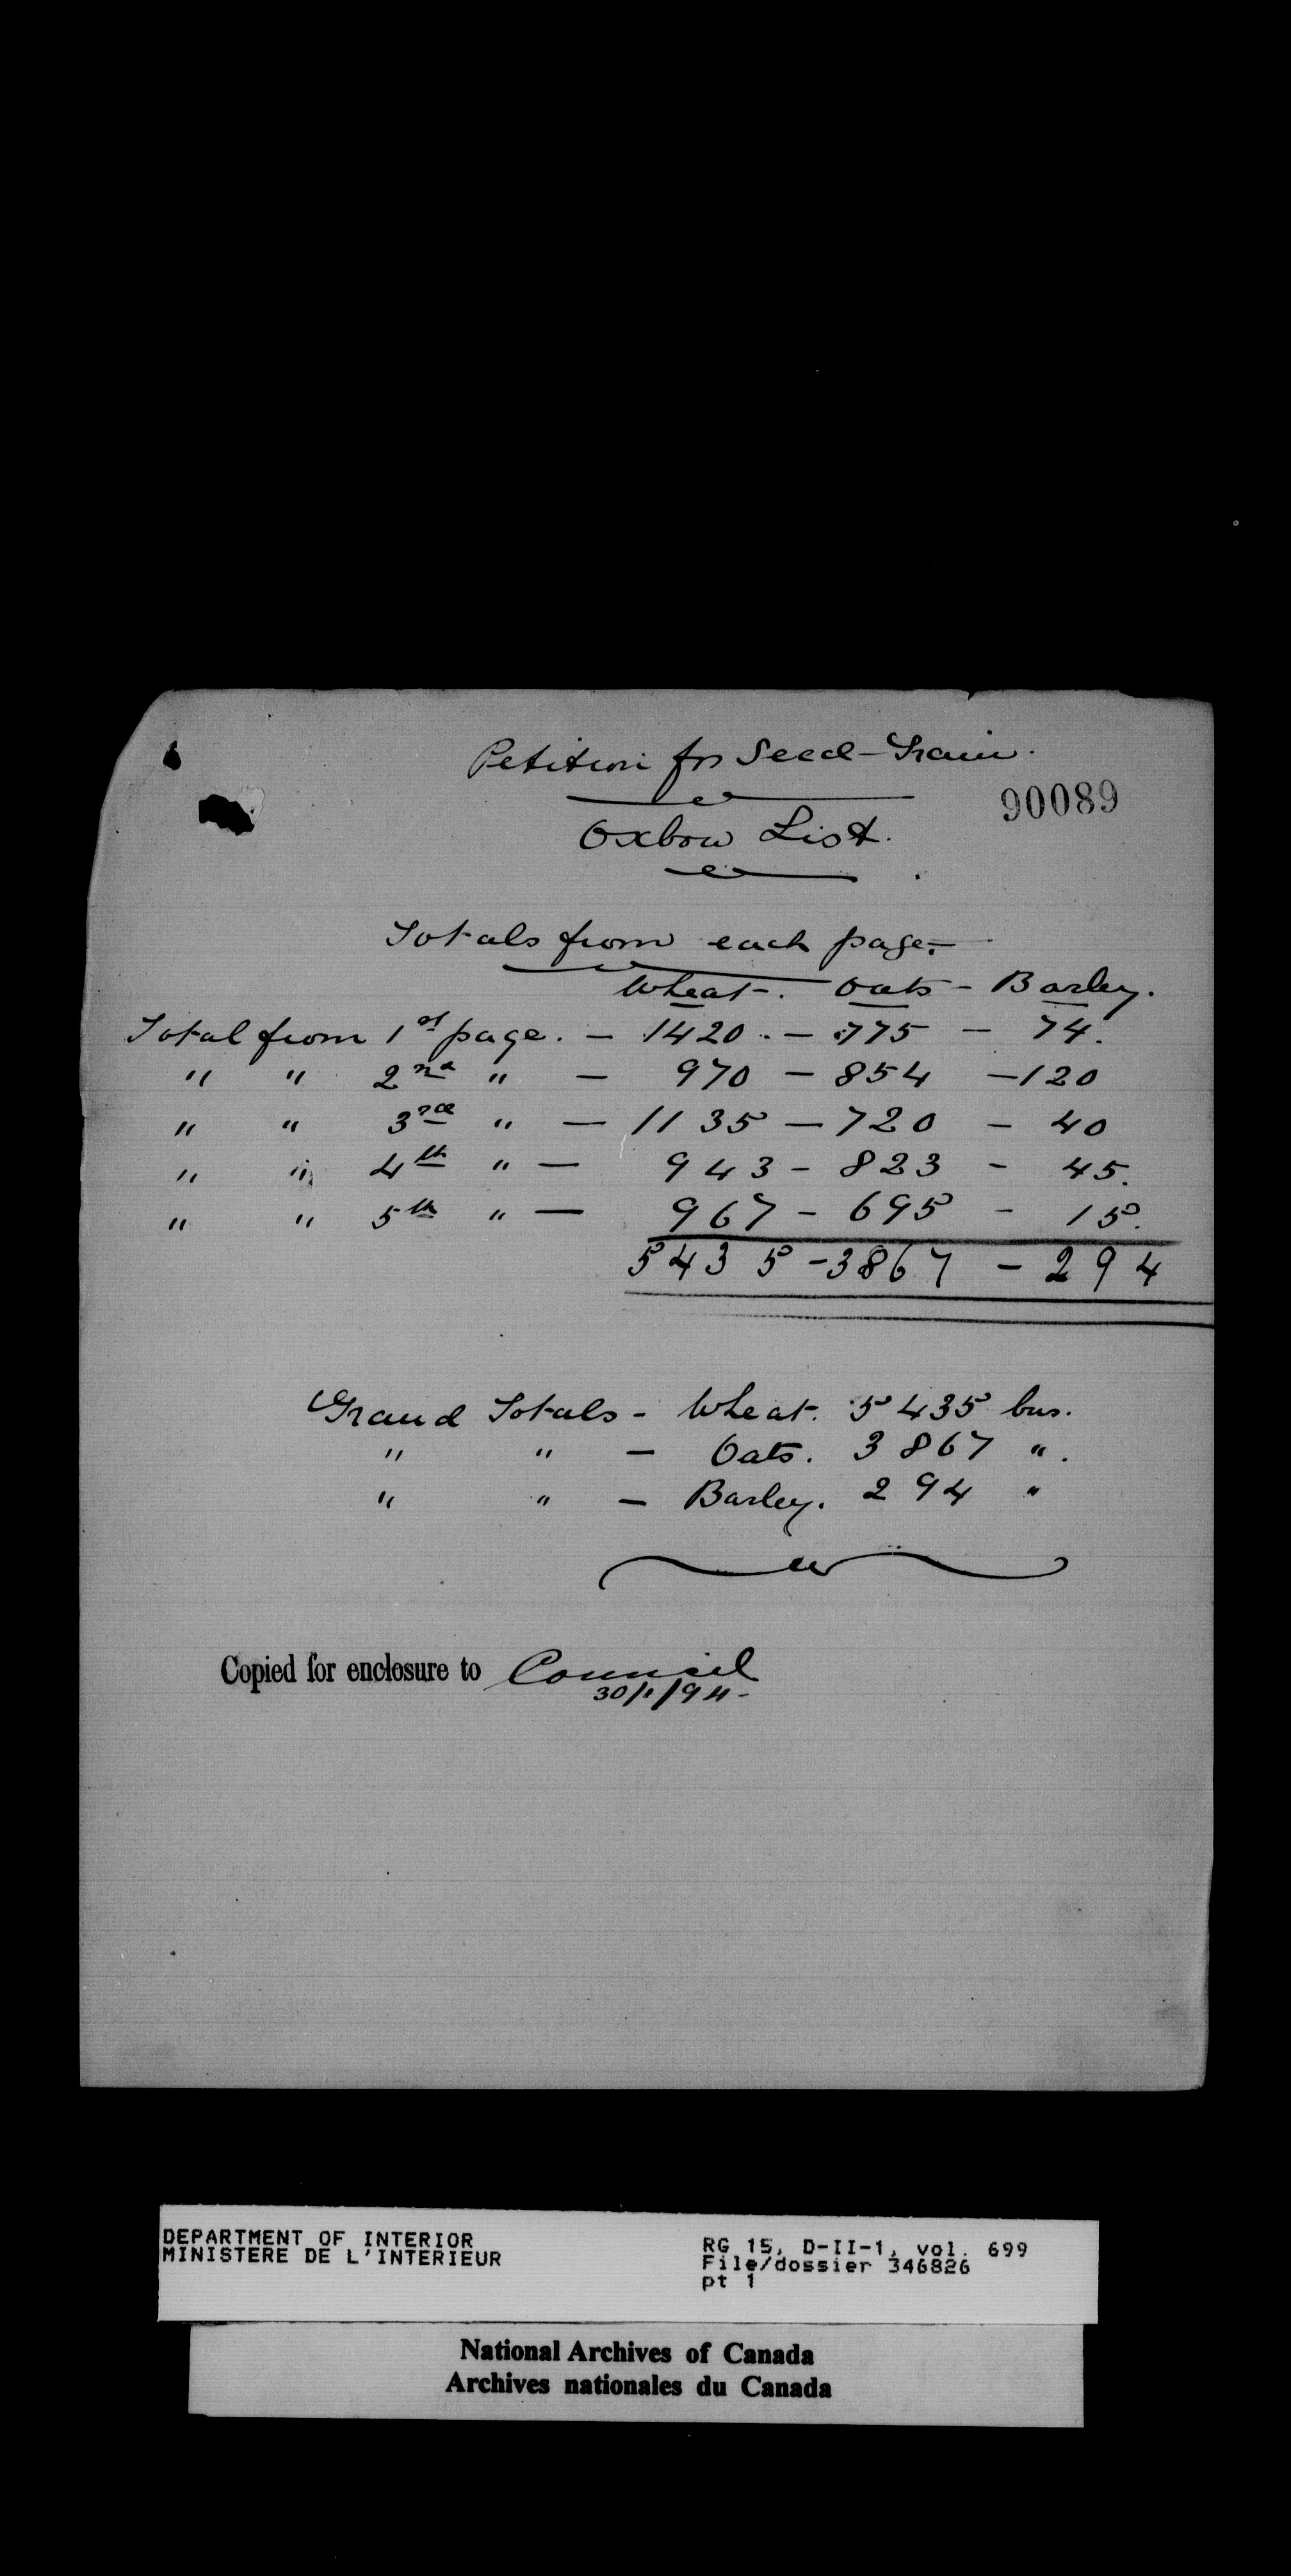 Petition for Seed-Grain.
90089
Oxbow List.
Totals from each page.
Wheat. Oats - Barley.
Total from 1st page. - 1420. - 775 - 74.
" " 2nd " - 970 - 854 - 120
" " 3rd " - 1135 - 720 - 40
" " 4th " - 943 - 823 - 45.
" " 5th " - 967 - 695 - 15.
5435 - 3867 - 294
Grand Totals - Wheat. 5435 bus.
" " - Oats. 3867 ".
" " - Barley. 294 "
Copied for enclosure to Council
30/1/94-
DEPARTMENT OF INTERIOR
MINISTERE DE L'INTERIEUR
RG 15, D-II-1, vol. 699
File/dossier 346826
pt 1
National Archives of Canada
Archives nationales du Canada